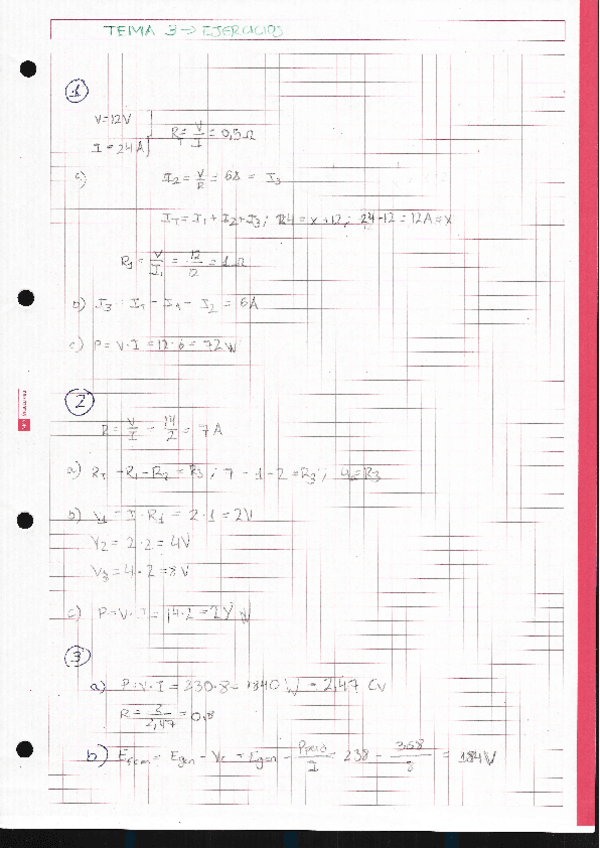 TEMA 3 → EJERCICIOS
1
V=12V
I = 24A } R_T = V/I = 0,5 Ω
c) I2 = V/R = 6A = I3
I_T = I1 + I2 + I3 ; 24 = x + 12 ; 24 - 12 = 12A = x
R1 = V/I1 = 12/12 = 1 Ω
b) I3 = I_T - I1 - I2 = 6A
c) P = V · I = 12 · 6 = 72W
2
R = V/I = 14/2 = 7A
a) R_T - R1 - R2 = R3 ; 7 - 1 - 2 = R3 ; 4 = R3
b) V1 = I · R1 = 2 · 1 = 2V
V2 = 2 · 2 = 4V
V3 = 4 · 2 = 8V
c) P = V · I = 14 · 2 = 2 W
3
a) P = V · I = 230 · 8 = 1840 W = 2,47 CV
R = 2/2,47 = 0,8
b) = Egen - = Egen - / I = 238 - / 8 = 184V